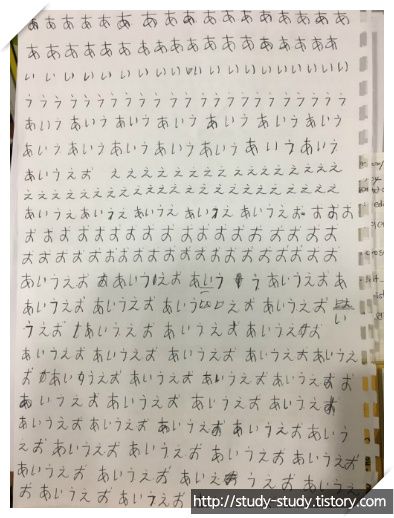 あああああああああああああああああ
ああああああああああああああああ
いいいいいいいいいいいいいいいいいい
うううううううううううううううううううう
あいう あいう あいう あいう あいう あいう
あいう あいう あいう あいう あいう あいう
あいうえお えええええええええええええ
ええええええええええええええええええ
あいうえ あいうえ あいうえ あいうえ あいうえお おおお
おおおおおおおおおおおおおおおお
おおおおおおおおおおおおおおおおお
あいうえお あいうえお あいう う あいうえお あ
あいうえお あいうえお あいう えお あいうえお い
うえお あいうえお あいうえお あいうえお
あいうえお あいうえお あいうえお あいうえお あいうえ
お あいうえお あいうえお あいうえお お
あいうえお あいうえお あいうえお あいうえお
あいうえお あいうえお あいうえお あいうえお あいう
えお あいうえお あいうえお あいうえお あいうえお
あいうえお あいうえお あいえ うえお あいうえお
お あいうえお あいうえお
http://study-study.tistory.com